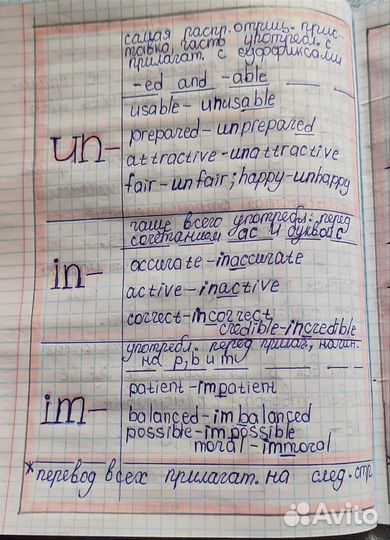 самая распр. отриц. прис-
тавка, часто употребл. с
прилагат. с суффиксами
-ed and -able
un-
usable - unusable
prepared - unprepared
attractive - unattractive
fair - unfair; happy - unhappy
чаще всего употребл. перед
сочетанием ac и буквой c
in-
accurate - inaccurate
active - inactive
correct - incorrect,
credible - incredible
употребл. перед прилаг., начин.
на p, b и m
im-
patient - impatient
balanced - imbalanced
possible - impossible
moral - immoral
*перевод всех прилагат. на след. стр.
Avito